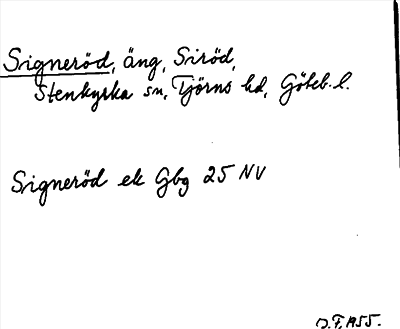 Signeröd, äng, Siröd,
Stenkyrka sn, Tjörns hd, Göteb. l.
Signeröd ek Gbg 25 NV
O.F. 1955.